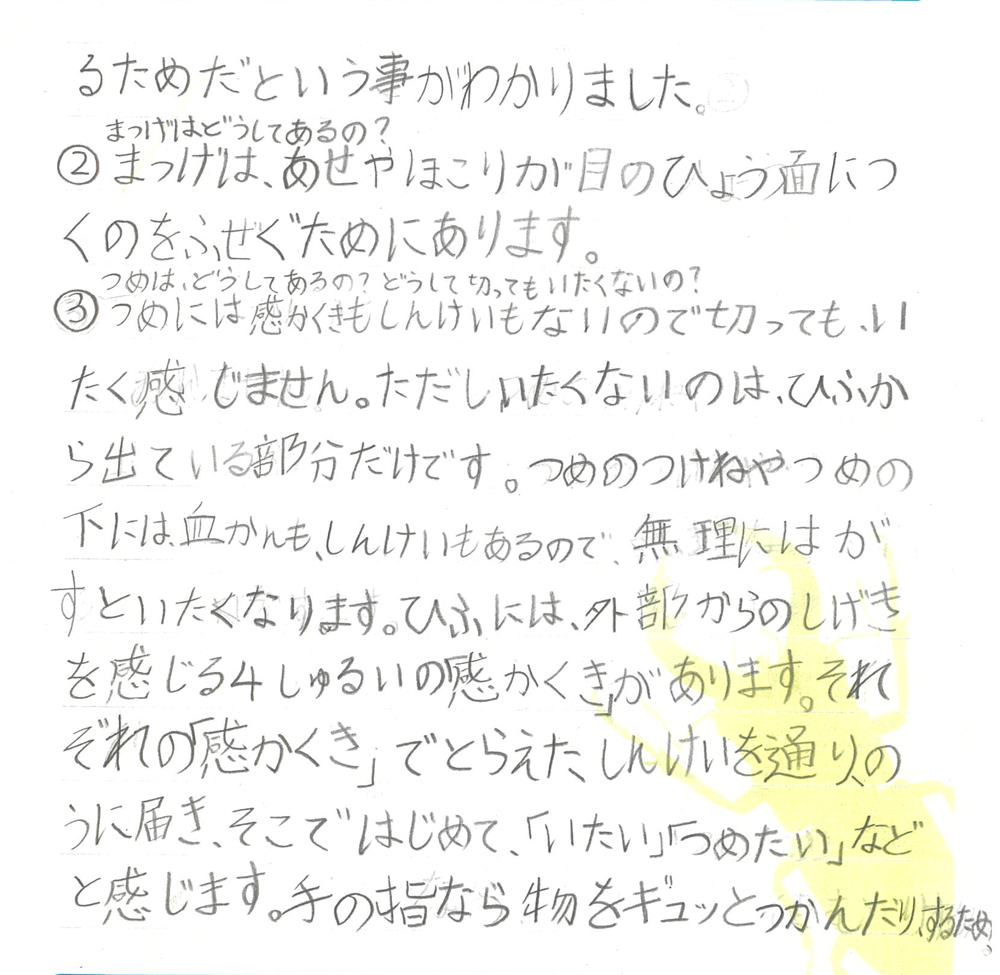 るためだという事がわかりました。
まつげはどうしてあるの?
②まつげは、あせやほこりが目のひょう面につ
くのをふせぐためにあります。
つめは、どうしてあるの?どうして切ってもいたくないの?
③つめには感かくきもしんけいもないので切っても、い
たく感じません。ただしいたくないのは、ひふか
ら出ている部分だけです。つめのつけねやつめの
下には、血かんも、しんけいもあるので、無理にはが
すといたくなります。ひふには、外部からのしげき
を感じる4しゅるいの「感かくき」があります。それ
ぞれの「感かくき」でとらえた、しんけいを通り、の
うに届き、そこではじめて、「いたい」「つめたい」など
と感じます。手の指なら物をギュッとつかんだり、するため。